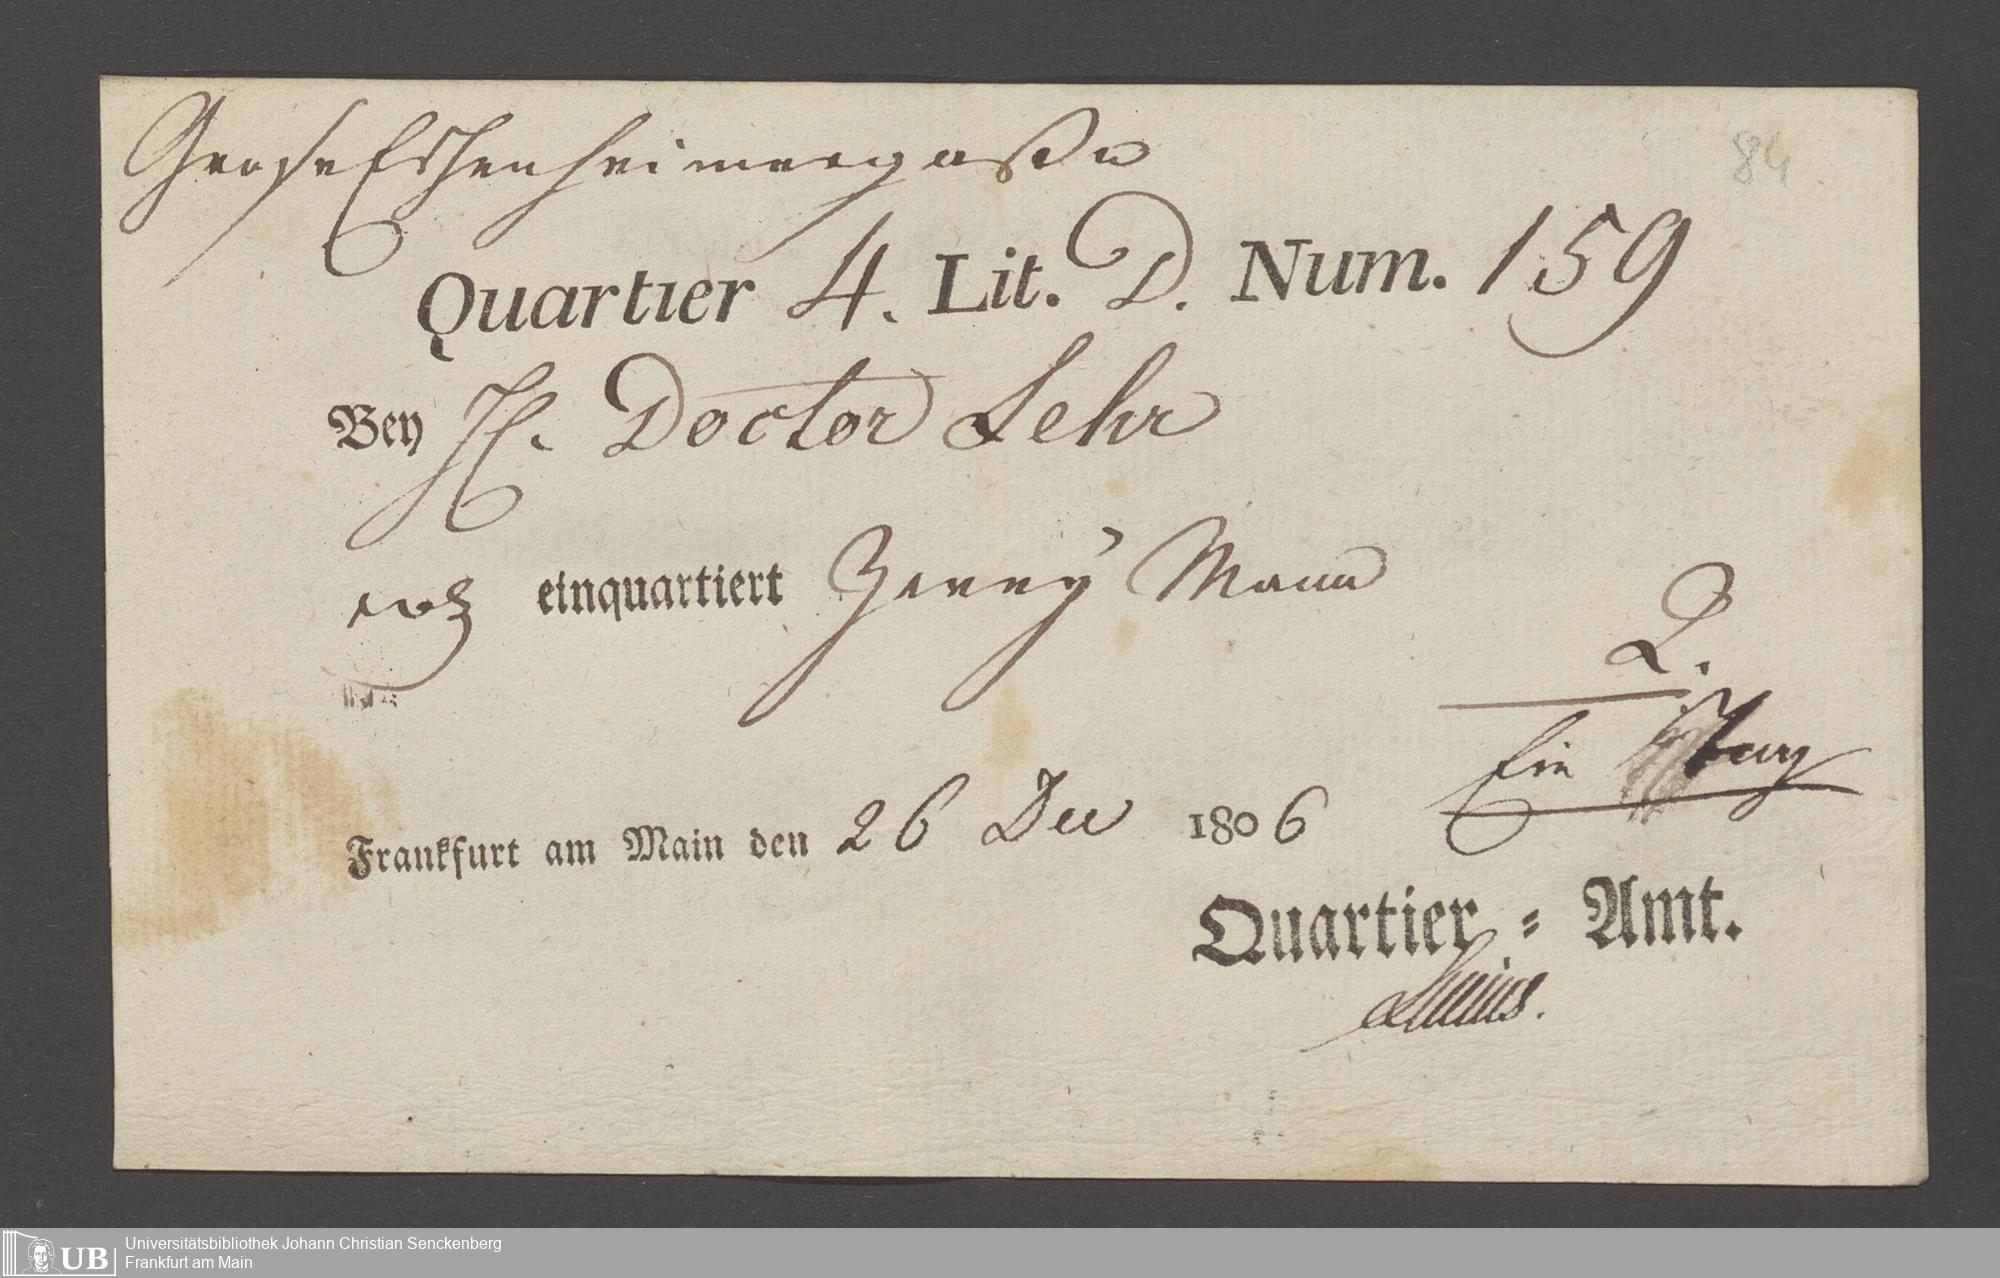 Grose Eschenheimergaße
84
Quartier 4. Lit. D. Num. 159
Bey H. Doctor Lehr
einquartiert Zweÿ Mann
2.
Ein Tag
Frankfurt am Main den 26 Dec 1806
Quartier-Amt.
UB Universitätsbibliothek Johann Christian Senckenberg
Frankfurt am Main